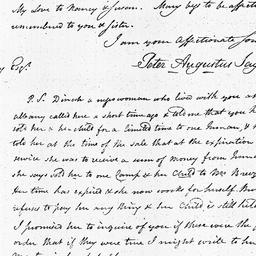 My love to Nancy & Susan. Mary begs to be affectio
remembered to you & sister.
I am your affectionate Son
Peter Augustus Jay
y Esqr.
P.S. Dinah a negrowoman who lived with you at
albany called here a short time ago & told me that you h
sold her & her child for a limited time to one Inman, & th
told her at the time of the sale that at the expiration
service she was to receive a sum of money from Inma
she says sold her to one Camp & her Child to Mr Breez
Her time has expired & she now works for himself. But
refuses to pay her any thing & her Child is still held
I promised her to inquire of you if these were the f
order that if they were true I might write to her